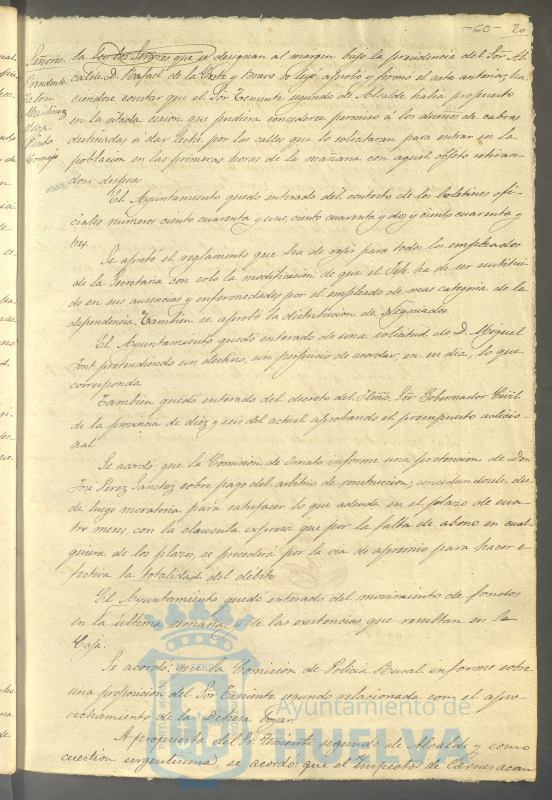 -60- 20
Señores
Presidente
Martinez
Pinto
Cornejo
la los Señores que se designan al margen bajo la presidencia del Sor. Al-
calde D. Rafael de la Corte y Bravo de lijo, aprobó y firmó el acta anterior, ha-
ciendose constar que el Sor Teniente segundo de Alcalde habia propuesto
en la citada sesion que pudiera concederse permiso á los dueños de cabras
destinadas á dar leche, por las calles que lo solicitaran para entrar en la
poblacion en las primeras horas de la mañana con aquel objeto retiran-
dose despues
El Ayuntamiento quedó enterado del contesto de los boletines ofi-
ciales numeros ciento cuarenta y uno, ciento cuarenta y dos y ciento cuarenta y
tres.
Se aprobó el reglamento que ha de rejir para todos los empleados
de la Secretaria con solo la modificacion de que el Jefe ha de ser sustitui-
do en sus ausencias y enfermedades por el empleado de mas categoria de la
dependencia. Tambien se aprobó la distribucion de Negociados
El Ayuntamiento quedó enterado de una solicitud de D. Miguel
Font pretendiendo un destino, sin perjuicio de acordar, en su dia, lo que
corresponda
Tambien quedó enterado del decreto del Iltmo. Sor Gobernador Civil
de la provincia de diez y seis del actual aprobando el presupuesto adicio-
nal
Se acordó: que la Comision de Ornato informe una pretencion de Don
José Perez Sanchez sobre pago del arbitrio de construccion; concediendole des-
de luego moratoria para satisfacer lo que adeuda en el plazo de cua-
tro meses, con la clausula expresa que por la falta de abono en cual-
quiera de los plazos, se procederá por la via de apremio para hacer e-
fectiva la totalidad del débito
El Ayuntamiento quedó enterado del movimiento de fondos
en la ultima semana y de las existencias que resultan en la
Caja.
Se acordó: que la Comision de Policia Rural informe sobre
una proposicion del Sor Teniente segundo relacionada con el apro-
vechamiento de la Dehesa boyar.
A propuesta del Sr. Teniente segundo de Alcalde y como
cuestion urgentisima se acordó: que el Inspector de Carnes acom
Ayuntamiento de
HUELVA